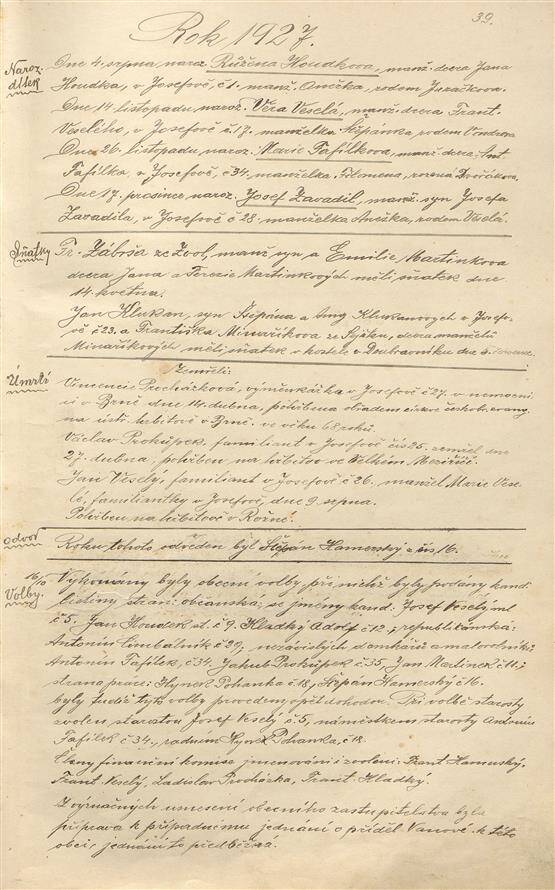 39.
Rok 1927.
Naroz. dítek
Dne 4. srpna naroz. Růžena Houdkova, manž. dcera Jana
Houdka, v Josefově, č 1. manž. Anežka, rodem
Dne 14. listopadu naroz. Věra Veselá, manž. dcera Frant.
Veselého, v Josefově č 17. manželka Štěpánka, rodem
Dne 26. listopadu, naroz. Marie Tafilkova, manž. dcera, Ant.
Tafilka, v Josefově, č 34, manželka Filomena, rozená Dvořákova.
Dne 17. prosince naroz. Josef Zavadil, manž. syn Josefa
Zavadila, v Josefově č 28. manželka Anežka, rodem Veselá.
Sňatky
Fr. Záboša ze Zvol, manž. syn, a Emilie Martinkova
dcera Jana a Terezie Martinkových měli sňatek dne
14. května.
Jan Klukan, syn Štěpána a Anny Klukanových v Josefo-
vě č 23. a Františka Minaříkova ze dcera manželů
Minaříkových měli sňatek v kostele v Doubravníku dne
Úmrtí
Zemřeli:
Vincencie Procházková, výměnkářka v Josefově č 27. v nemocni-
ci v Brně dne 14. dubna, pohřbena obřadem církve českobr. evang.
na ústř. hřbitově v Brně. ve věku 68 roků.
Václav Prokůpek, familiant v Josefově čís 25. zemřel dne
27. dubna, pohřben na hřbitov ve Velkém Meziříčí.
Jan Veselý, familiant v Josefově č 26. manžel Marie Vese-
lé, familiantky v Josefově, dne 9. srpna.
Pohřben na hřbitově v Rožné.
odvod
Roku tohoto odveden byl Štěpán Hamerský z čís 16.
16/10 Volby.
Vykonány byly obecní volby, při nichž byly podány kand.
listiny stran: občanská; se jmény kand. Josef Veselý ml.
č 5. Jan Houdek st. č 9. Hladký Adolf č 12.; republikánská:
Antonín Cimbálník č 29; nezávislých domkářů a malorolníků:
Antonín Tafilek, č 34, Jakub Prokůpek č 35, Jan Martinek č 11.;
strana práce: Hynek Pohanka č 18, Štěpán Hamerský č 16.
byly tudíž tyto volby provedeny opět dohodou. Při volbě starosty
zvolen, starostou Josef Veselý č 5, náměstkem starosty Antonín
Tafilek č 34., radním Hynek Pohanka, č 18.
Členy finanční komise jmenováni a zvoleni: Frant. Hamerský,
Frant. Veselý, Ladislav Procházka, Frant. Hladký.
Z význačných usnesení obecního zastupitelstva byla
příprava k případnému jednání o příděl Vanové k této
obci, jednání to předběžná.